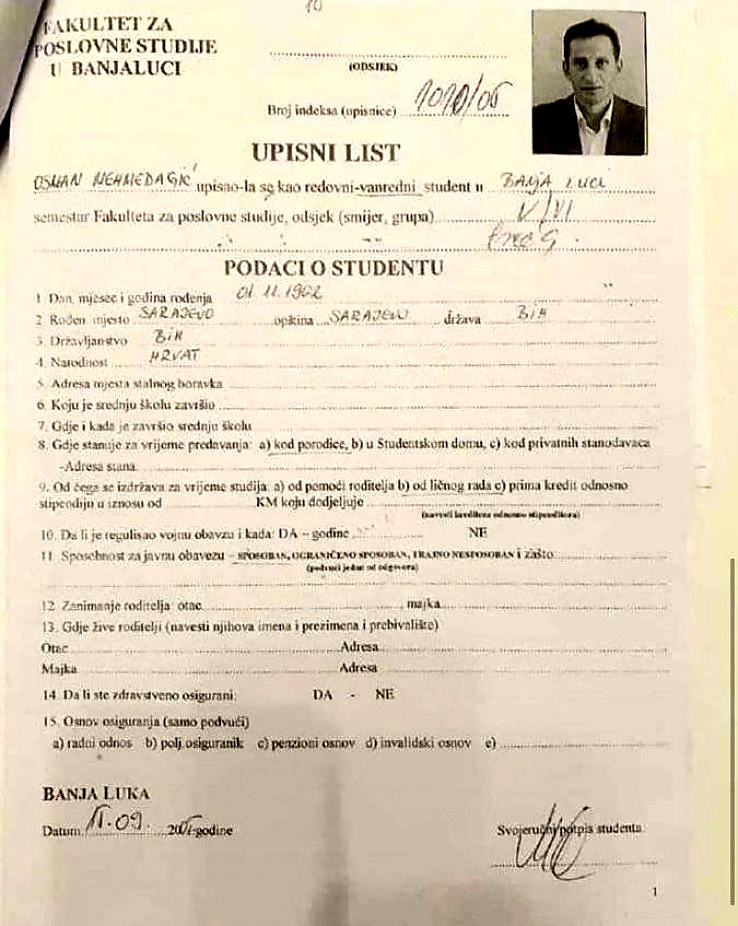 10
FAKULTET ZA
POSLOVNE STUDIJE
U BANJALUCI
(ODSJEK)
Broj indeksa (upisnice) 1010/05
UPISNI LIST
OSMAN MEHMEDAGIĆ upisao-la se kao redovni-vanredni student u BANJA LUCI
semestar Fakulteta za poslovne studije, odsjek (smijer, grupa) V/VI
PODACI O STUDENTU
1. Dan, mjesec i godina rođenja 01.11.1962
2. Rođen mjesto SARAJEVO opština SARAJEVO država BiH
3. Državljanstvo BiH
4. Narodnost HRVAT
5. Adresa mjesta stalnog boravka
6. Koju je srednju školu završio
7. Gdje i kada je završio srednju školu
8. Gdje stanuje za vrijeme predavanja: a) kod porodice, b) u Studentskom domu, c) kod privatnih stanodavaca
-Adresa stana
9. Od čega se izdržava za vrijeme studija: a) od pomoći roditelja b) od ličnog rada c) prima kredit odnosno
stipendiju u iznosu od KM koju dodjeljuje
(navesti kreditora odnosno stipenditora)
10. Da li je regulisao vojnu obavzu i kada: DA – godine NE
11. Sposobnost za javnu obavezu – SPOSOBAN, OGRANIČENO SPOSOBAN, TRAJNO NESPOSOBAN i zašto
(podvući jedan od odgovora)
12. Zanimanje roditelja: otac, majka
13. Gdje žive roditelji (navesti njihova imena i prezimena i prebivalište)
Otac Adresa
Majka Adresa
14. Da li ste zdravstveno osigurani: DA - NE
15. Osnov osiguranja (samo podvući)
a) radni odnos b) polj.osiguranik c) penzioni osnov d) invalidski osnov e)
BANJA LUKA
Datum 11.09. 2005 godine Svojeručni potpis studenta
1